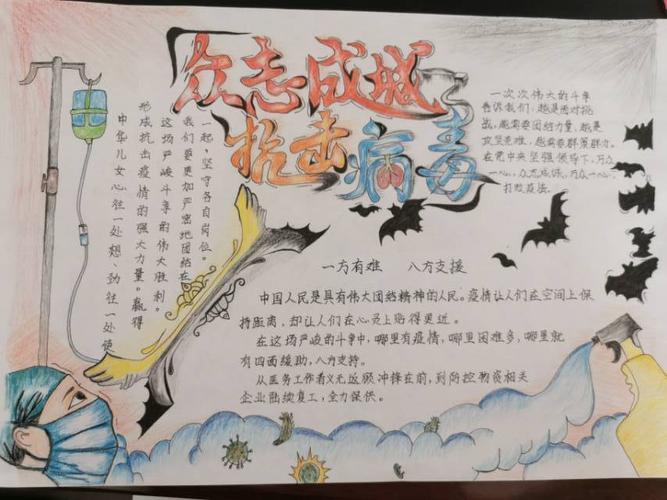 众志成城
抗击病毒
一次次伟大的斗争
告诉我们,越是面对挑
战,越需要团结力量,越是
攻坚克难,越需要群策群力。
在党中央坚强领导下,万众
一心,众志成城,万众一心,
打败疫法。
一起,坚守各自岗位。
我们要更加严密地团结在
这场严峻斗争的伟大胜利。
形成抗击疫情的强大力量。赢得
中华儿女心往一处想、劲往一处使
一方有难 八方支援
中国人民是具有伟大团结精神的人民。疫情让人们在空间上保
持距离,却让人们在心灵上贴得更近。
在这场严峻的斗争中,哪里有疫情,哪里困难多,哪里就
有四面缓助,八方支持。
从医务工作者义无反顾冲锋在前,到防控物资相关
企业陆续复工,全力保供。